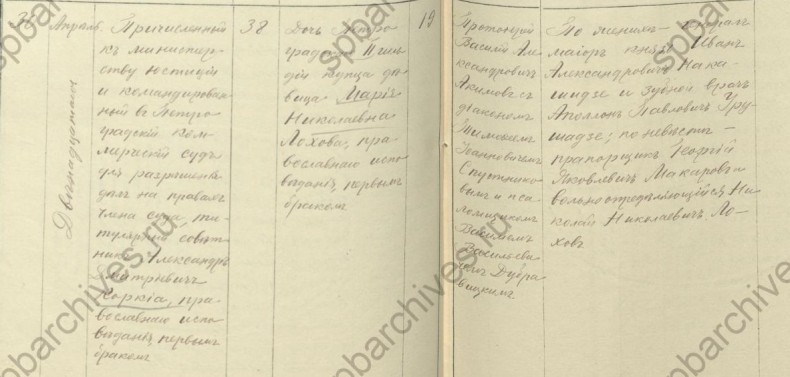 Апрѣль
Двѣнадцатаго
Причисленный
къ министер-
ству юстиціи
и командирован-
ный въ Петро-
градскій ком-
мерческій судъ
для разрѣшенія
дѣлъ на правахъ
члена суда, ти-
тулярный совѣт-
никъ Александръ
Дмитріевичъ
Коркіа, пра-
вославнаго испо-
вѣданія, первымъ
бракомъ
38
Дочь Петро-
градской гиль-
діи купца дѣ-
вица Марія
Николаевна
Лохова, пра-
вославнаго испо-
вѣданія, первымъ
бракомъ
19
Протоіерей
Василій Але-
ксандровичъ
Акимовъ съ
діакономъ
Іоанновичемъ
Спутнико-
вымъ и пса-
ломщикомъ
Василіемъ
Васильеви-
чемъ Дубра-
вицкимъ
По женихѣ – генералъ
маіоръ князь Иванъ
Александровичъ Нака-
шидзе и зубной врачъ
Аполлонъ Павловичъ Уру-
шадзе; по невѣстѣ –
прапорщикъ Георгій
Яковлевичъ Макаровъ и
вольноопредѣляющійся Ни-
колай Николаевичъ Ло-
ховъ
spbarchives.ru
spbarchives.ru
spbarchives.ru
spbarchives.ru